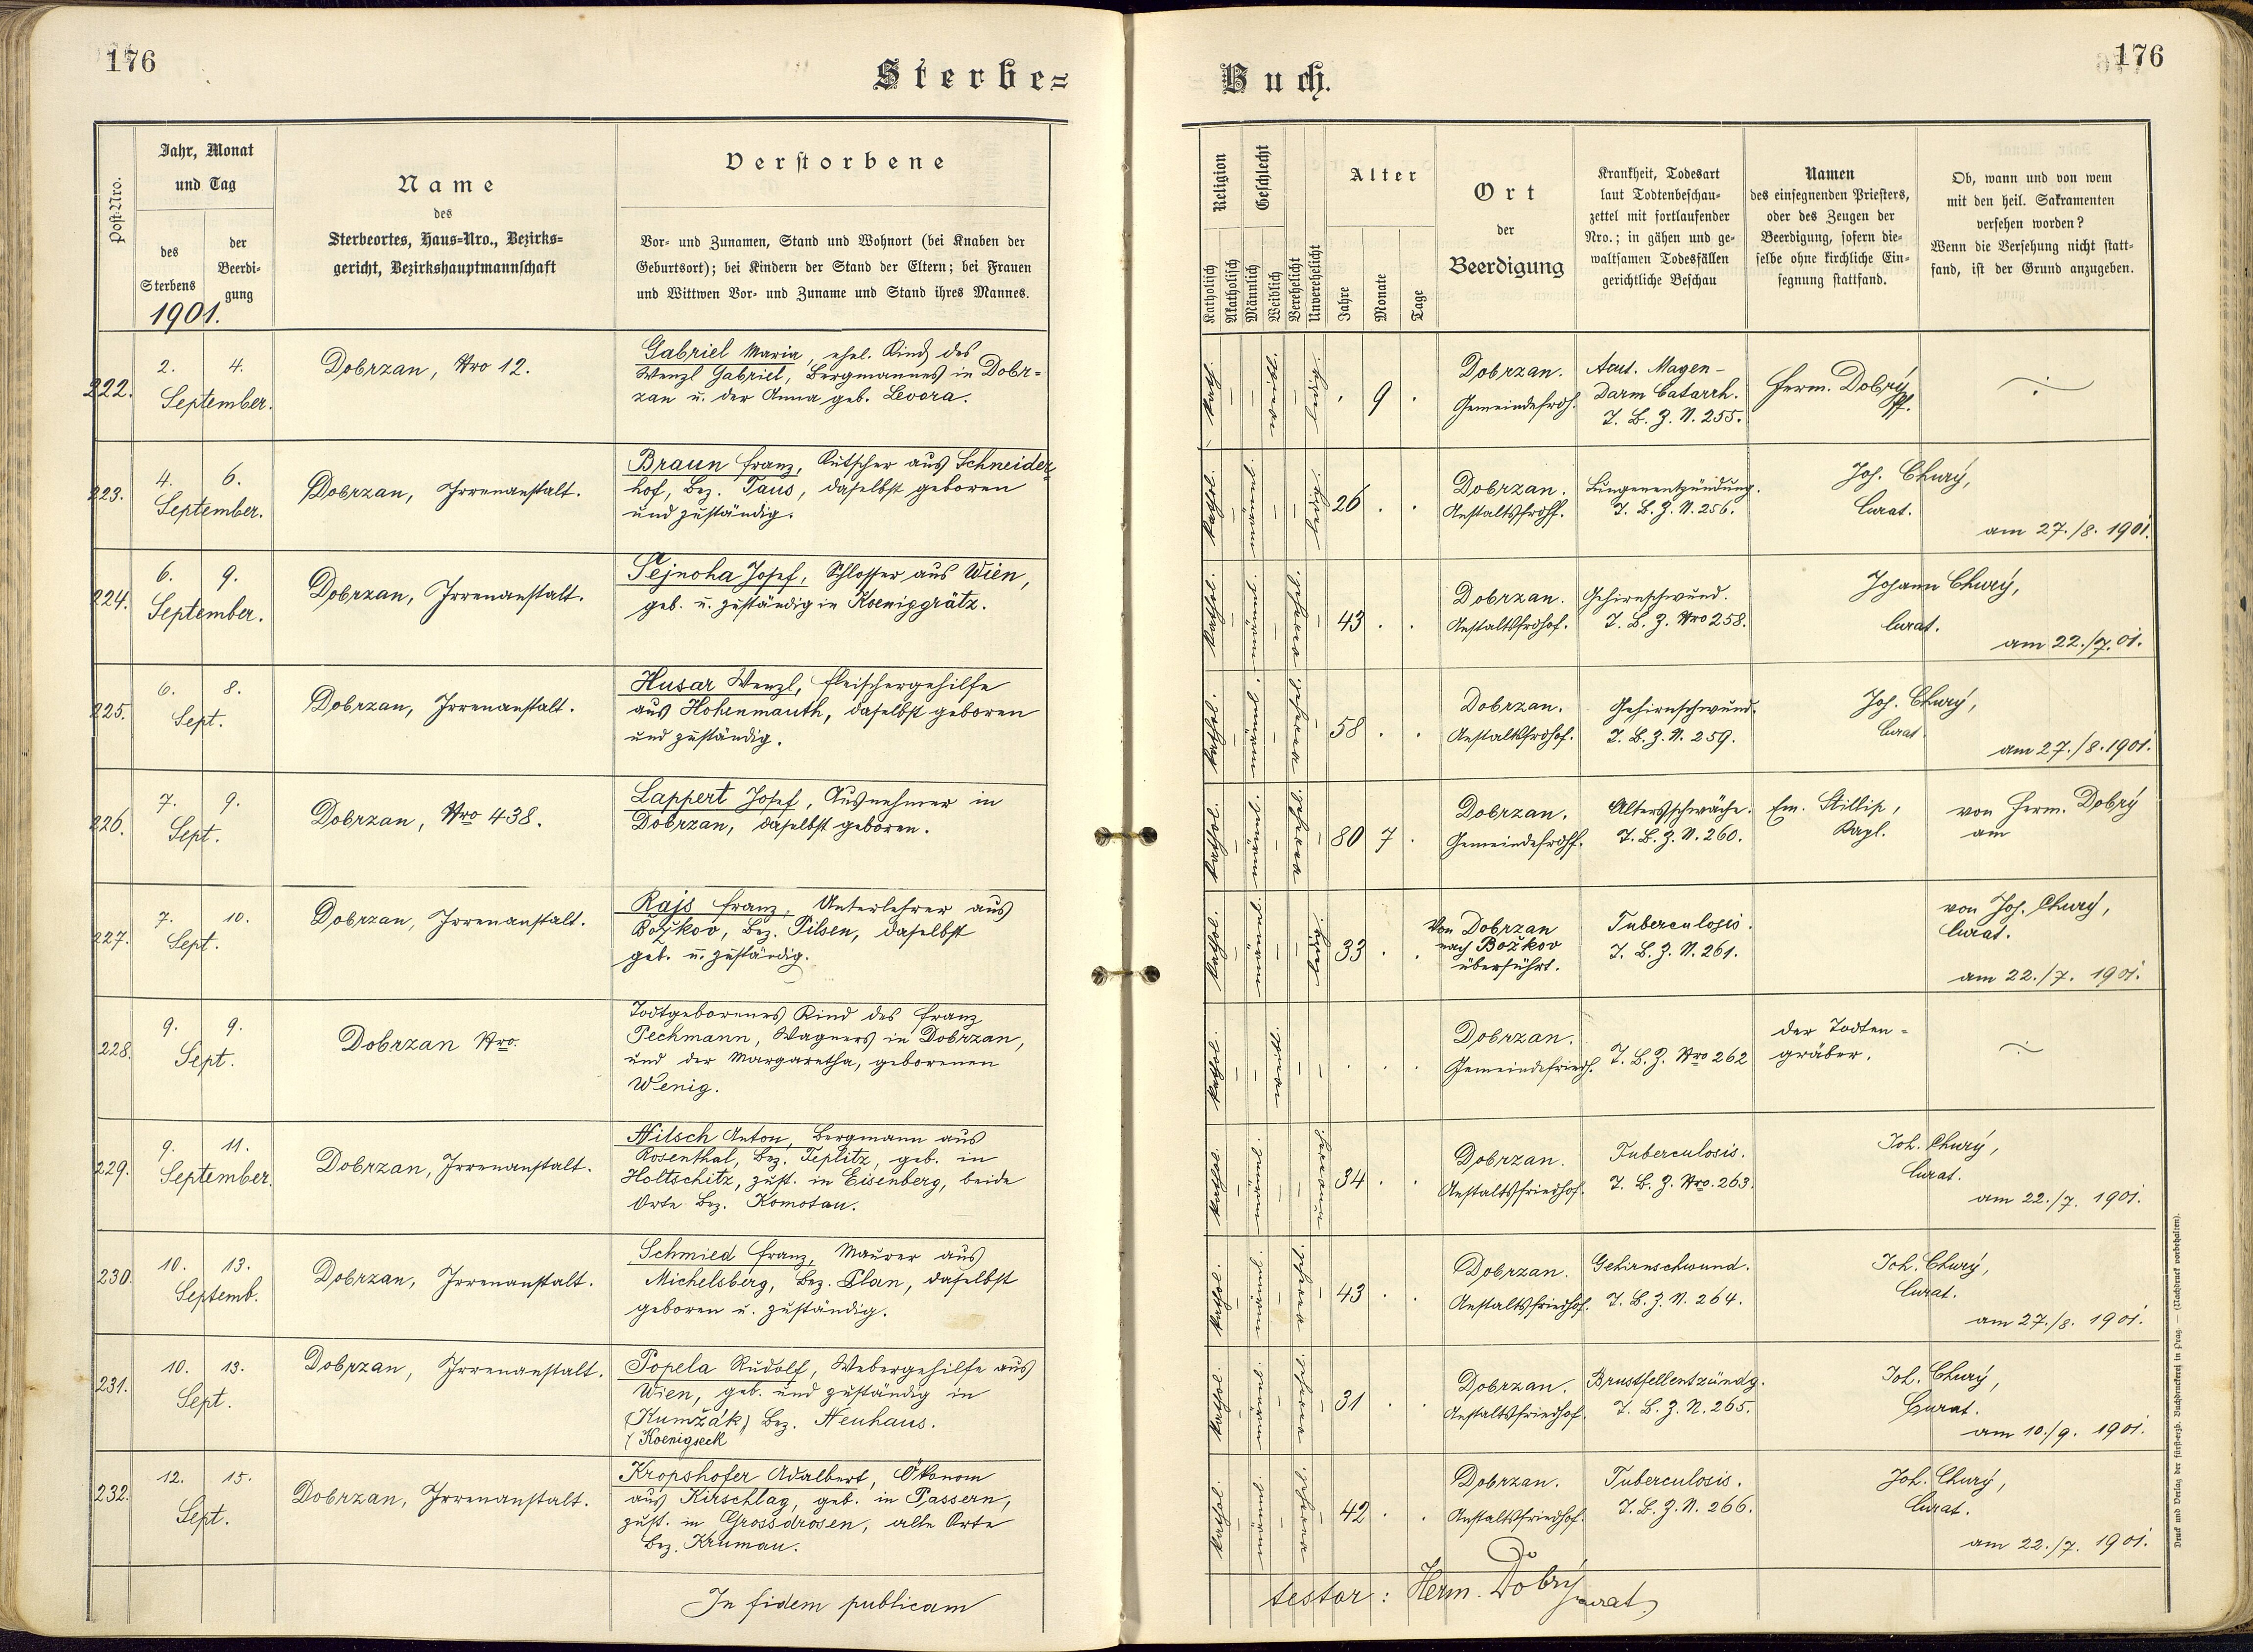 176
Sterbe=
Buch.
176
Post-Nro.
Jahr, Monat
und Tag
des
Sterbens
der
Beerdi-
gung
1901.
Name
des
Sterbeortes, Haus=Nro., Bezirks=
gericht, Bezirkshauptmannschaft
Verstorbene
Vor- und Zunamen, Stand und Wohnort (bei Knaben der
Geburtsort); bei Kindern der Stand der Eltern; bei Frauen
und Wittwen Vor- und Zuname und Stand ihres Mannes.
Religion
Katholisch
Akatholisch
Geschlecht
Männlich
Weiblich
Verehelicht
Unverehelicht
Alter
Jahre
Monate
Tage
Ort
der
Beerdigung
Krankheit, Todesart
laut Todtenbeschau-
zettel mit fortlaufender
Nro.; in gähen und ge-
waltsamen Todesfällen
gerichtliche Beschau
Namen
des einsegnenden Priesters,
oder des Zeugen der
Beerdigung, sofern die-
selbe ohne kirchliche Ein-
segnung stattfand.
Ob, wann und von wem
mit den heil. Sakramenten
versehen worden?
Wenn die Versehung nicht statt-
fand, ist der Grund anzugeben.
222.
2. 4.
September.
Dobrzan, Nro 12.
Gabriel Maria, ehel. Kind des
Wenzl Gabriel, Bergmannes in Dobr=
zan u. der Anna geb. Levora.
kath.
weibl.
ledig
9
Dobrzan.
Gemeindefrdh.
Acut. Magen-
Darm Catarrh.
T. B. Z. N. 255.
Herm. Dobrý
Pf.
223.
4. 6.
September.
Dobrzan, Irrenanstalt.
Braun Franz, Kutscher aus Schneider=
hof, Bez. Taus, daselbst geboren
und zuständig.
kathol.
männl.
ledig
26
Dobrzan.
Anstaltsfrdhf.
Lungenentzündung.
T. B. Z. N. 256.
Joh. Churý,
Curat.
am 27./8. 1901.
224.
6. 9.
September.
Dobrzan, Irrenanstalt.
Sejnoha Josef, Schlosser aus Wien,
geb. u. zuständig in Koeniggrätz.
kathol.
männl.
43
Dobrzan.
Anstaltsfrdhof.
Gehirnschwund.
T. B. Z. Nro 258.
Johann Churý,
Curat.
am 22./7. 01.
225.
6. 8.
Sept.
Dobrzan, Irrenanstalt.
Husar Wenzl, Fleischergehilfe
aus Hohenmauth, daselbst geboren
und zuständig.
kathol.
männl.
58
Dobrzan.
Anstaltsfrdhof.
Gehirnschwund.
T. B. Z. N. 259.
Joh. Churý,
Curat
am 27./8. 1901.
226.
7. 9.
Sept.
Dobrzan, Nro 438.
Lappert Josef, Ausnehmer in
Dobrzan, daselbst geboren.
kathol.
männl.
80 7
Dobrzan.
Gemeindefrdhf.
Altersschwäche.
T. B. Z. N. 260.
Em. Stillip,
Kapl.
von Herm. Dobrý
am
227.
7. 10.
Sept.
Dobrzan, Irrenanstalt.
Rajs Franz, Unterlehrer aus
Božkov, Bez. Pilsen, daselbst
geb. u. zuständig.
kathol.
männl.
ledig
33
Von Dobrzan
nach Božkov
überführt.
Tuberculosis.
T. B. Z. N. 261.
von Joh. Churý,
Curat.
am 22./7. 1901.
228.
9. 9.
Sept.
Dobrzan Nro.
Todtgeborenes Kind des Franz
Pechmann, Wagners in Dobrzan,
und der Margaretha, geborenen
Wenig.
kathol.
weibl.
Dobrzan.
Gemeindefriedh.
T. B. Z. Nro 262
der Todten=
gräber.
229.
9. 11.
September.
Dobrzan, Irrenanstalt.
Nitsch Anton, Bergmann aus
Rosenthal, Bez. Teplitz, geb. in
Holtschitz, zust. in Eisenberg, beide
Orte Bez. Komotau.
kathol.
männl.
34
Dobrzan.
Anstaltsfriedhof.
Tuberculosis.
T. B. Z. Nro. 263.
Joh. Churý,
Curat.
am 22./7. 1901.
230.
10. 13.
Septemb.
Dobrzan, Irrenanstalt.
Schmied Franz, Maurer aus
Michelsberg, Bez. Plan, daselbst
geboren u. zuständig.
kathol.
männl.
43
Dobrzan.
Anstaltsfriedhof.
Gehirnschwund.
T. B. Z. N. 264.
Joh. Churý,
Curat.
am 27./8. 1901.
231.
10. 13.
Sept.
Dobrzan, Irrenanstalt.
Popela Rudolf, Webergehilfe aus
Wien, geb. und zuständig in
(Kumžák) Bez. Neuhaus.
/ Koenigseck
kathol.
männl.
31
Dobrzan.
Anstaltsfriedhof.
Brustfellentzündg.
T. B. Z. N. 265.
Joh. Churý,
Curat.
am 10./9. 1901.
232.
12. 15.
Sept.
Dobrzan, Irrenanstalt.
Kropshofer Adalbert, Ökonom
aus Kirschlag, geb. in Passern,
zust. in Grossdrosen, alle Orte
Bez. Krumau.
kathol.
männl.
42
Dobrzan.
Anstaltsfriedhof.
Tuberculosis.
T. B. Z. N. 266.
Joh. Churý,
Curat.
am 22./7. 1901.
In fidem publicam
testor: Herm. Dobrý
Druck und Verlag der fürst-erzb. Buchdruckerei in Prag. — (Nachdruck vorbehalten).